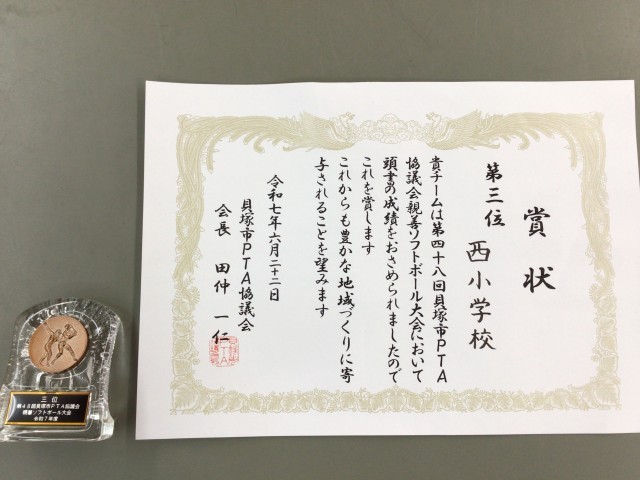 賞状
第三位 西小学校
貴チームは第四十八回貝塚市PTA
協議会親善ソフトボール大会において
頭書の成績をおさめられましたので
これを賞します
これからも豊かな地域づくりに寄
与されることを望みます
令和七年六月二十二日
貝塚市PTA協議会
会長 田仲 一仁
三位
第48回貝塚市PTA協議会
親善ソフトボール大会
令和7年度